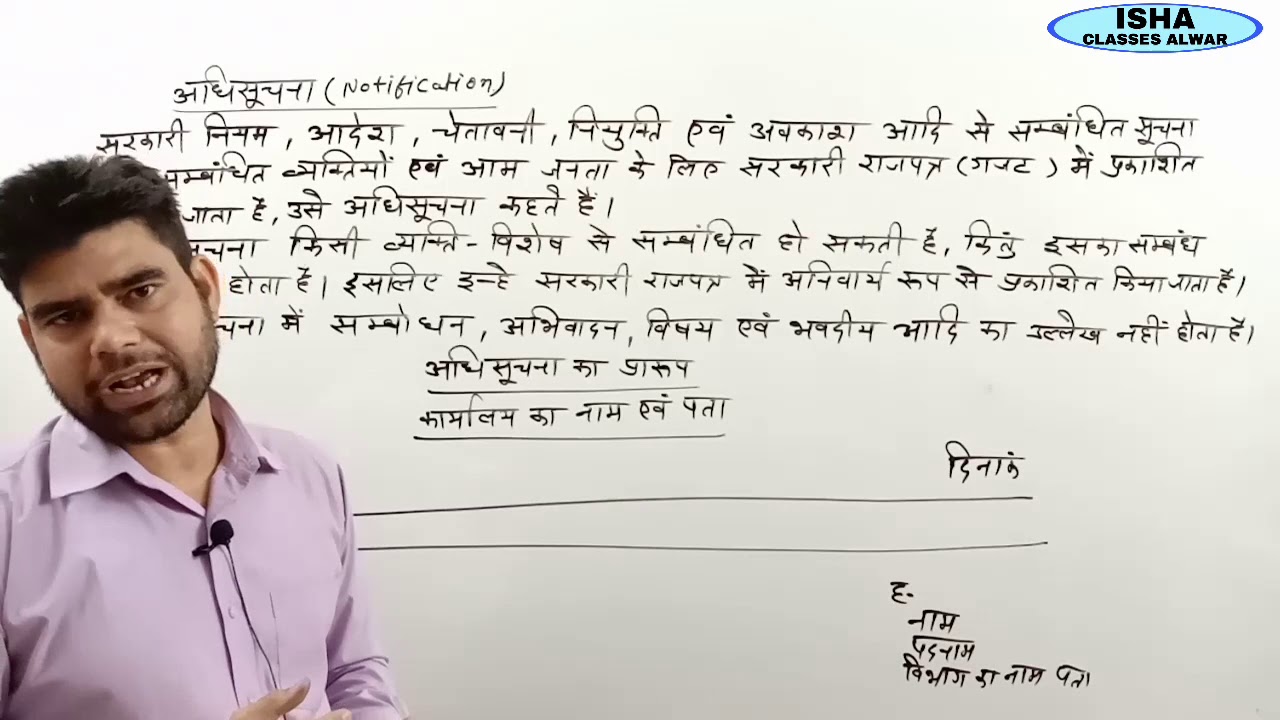 ISHA
CLASSES ALWAR
अधिसूचना (Notification)
सरकारी नियम, आदेश, चेतावनी, नियुक्ति एवं अवकाश आदि से सम्बंधित सूचना
सम्बंधित व्यक्तियों एवं आम जनता के लिए सरकारी राजपत्र (गजट) में प्रकाशित
जाता है, उसे अधिसूचना कहते हैं।
किसी व्यक्ति-विशेष से सम्बंधित हो सकती है, किंतु इसका सम्बंध
होता है। इसलिए इन्हे सरकारी राजपत्र में अनिवार्य रूप से प्रकाशित किया जाता है।
में सम्बोधन, अभिवादन, विषय एवं भवदीय आदि का उल्लेख नहीं होता है।
अधिसूचना का प्रारूप
कार्यालय का नाम एवं पता
दिनाकं
ह.
नाम
पदनाम
विभाग का नाम पता